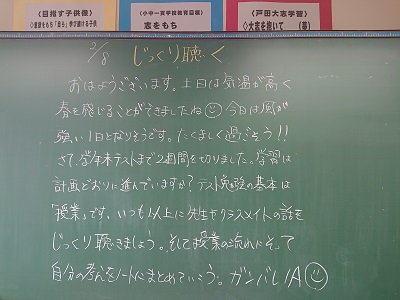 〈目指す子供像〉
〈小中一貫学校教育目標〉
志をもち
〈戸田大志学習〉
◇大志を抱いて
2/8 じっくり聴く
おはようございます。土日は気温が高く
春を感じることができましたね☺今日は風が
強い1日となりそうです。たくましく過ごそう!!
さて、学年末テストまで2週間を切りました。学習は
計画どおりに進んでいますか?テスト勉強の基本は
「授業」です。いつも以上に先生やクラスメイトの話を
じっくり聴きましょう。そして授業の流れにそって
自分の考えをノートにまとめていこう。ガンバレA☺